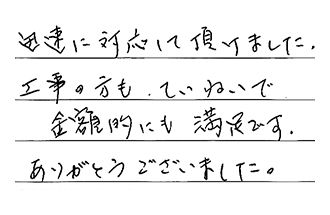 迅速に対応して頂けました。
工事の方も、ていねいで
金額的にも満足です。
ありがとうございました。